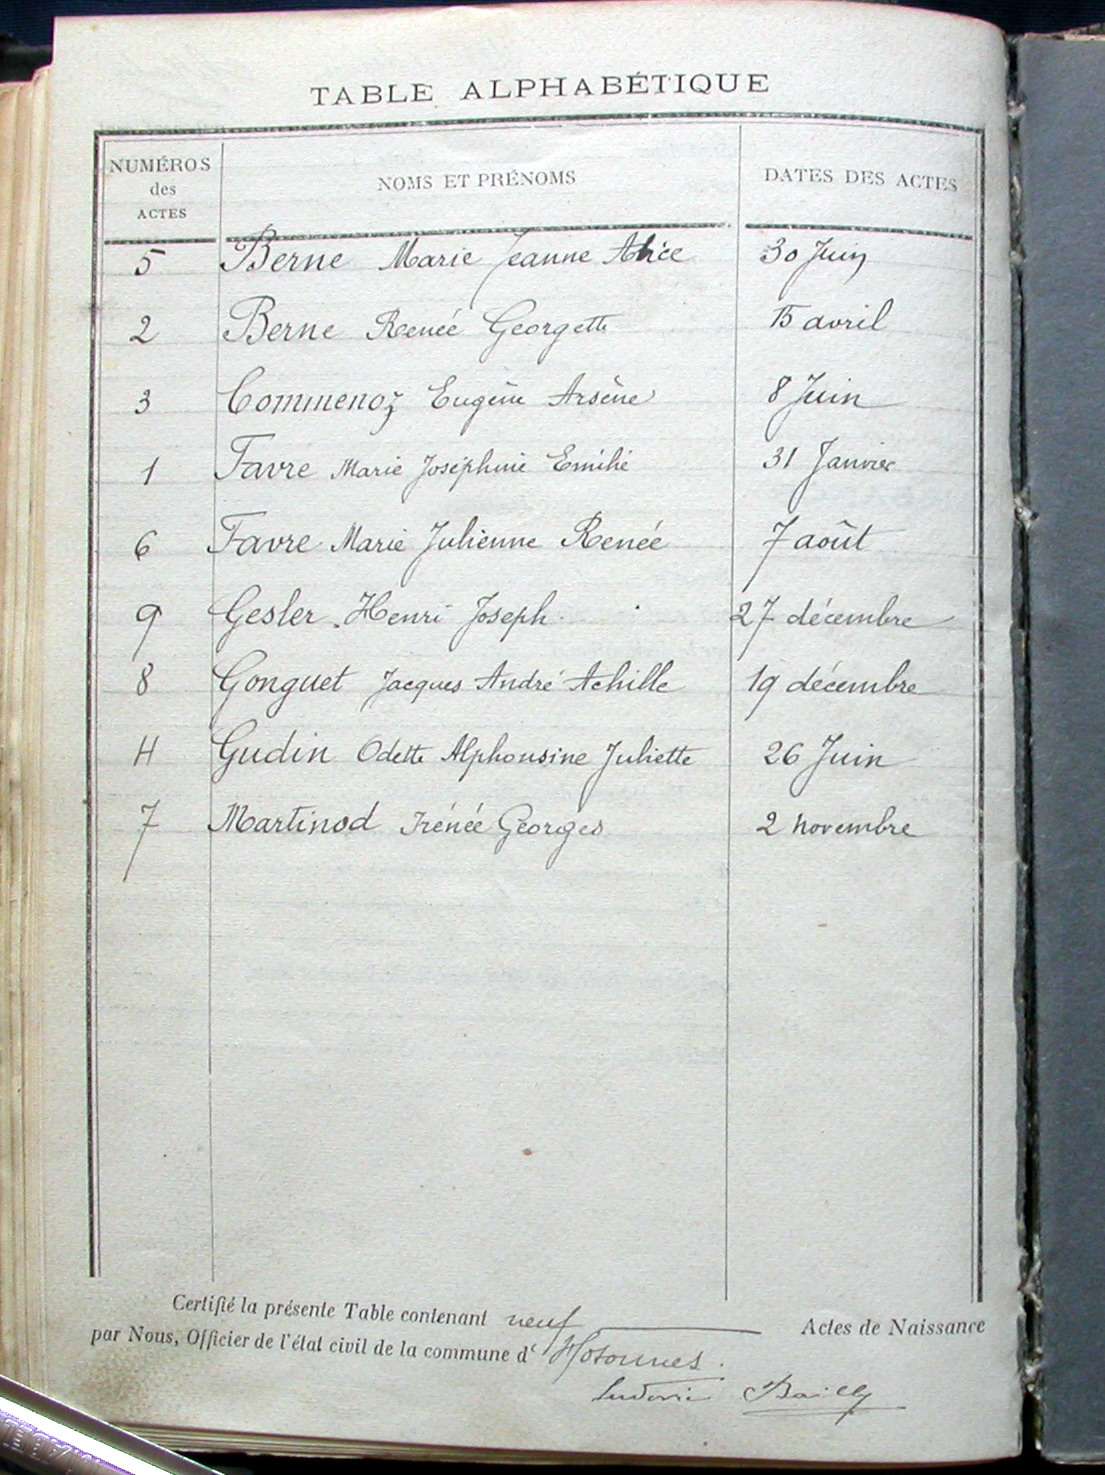 TABLE ALPHABÉTIQUE
NUMÉROS des ACTES NOMS ET PRÉNOMS DATES DES ACTES
5 Berne Marie Jeanne Alice 30 Juin
2 Berne Renée Georgette 15 avril
3 Commenoz Eugène Arsène 8 Juin
1 Favre Marie Joséphine Emilie 31 Janvier
6 Favre Marie Julienne Renée 7 août
9 Gesler Henri Joseph 27 décembre
8 Gonguet Jacques André Achille 19 décembre
4 Gudin Odette Alphonsine Juliette 26 Juin
7 Martinod Irénée Georges 2 novembre
Certifié la présente Table contenant neuf Actes de Naissance
par Nous, Officier de l'état civil de la commune d' Hotonnes.
Ludovic Bailly